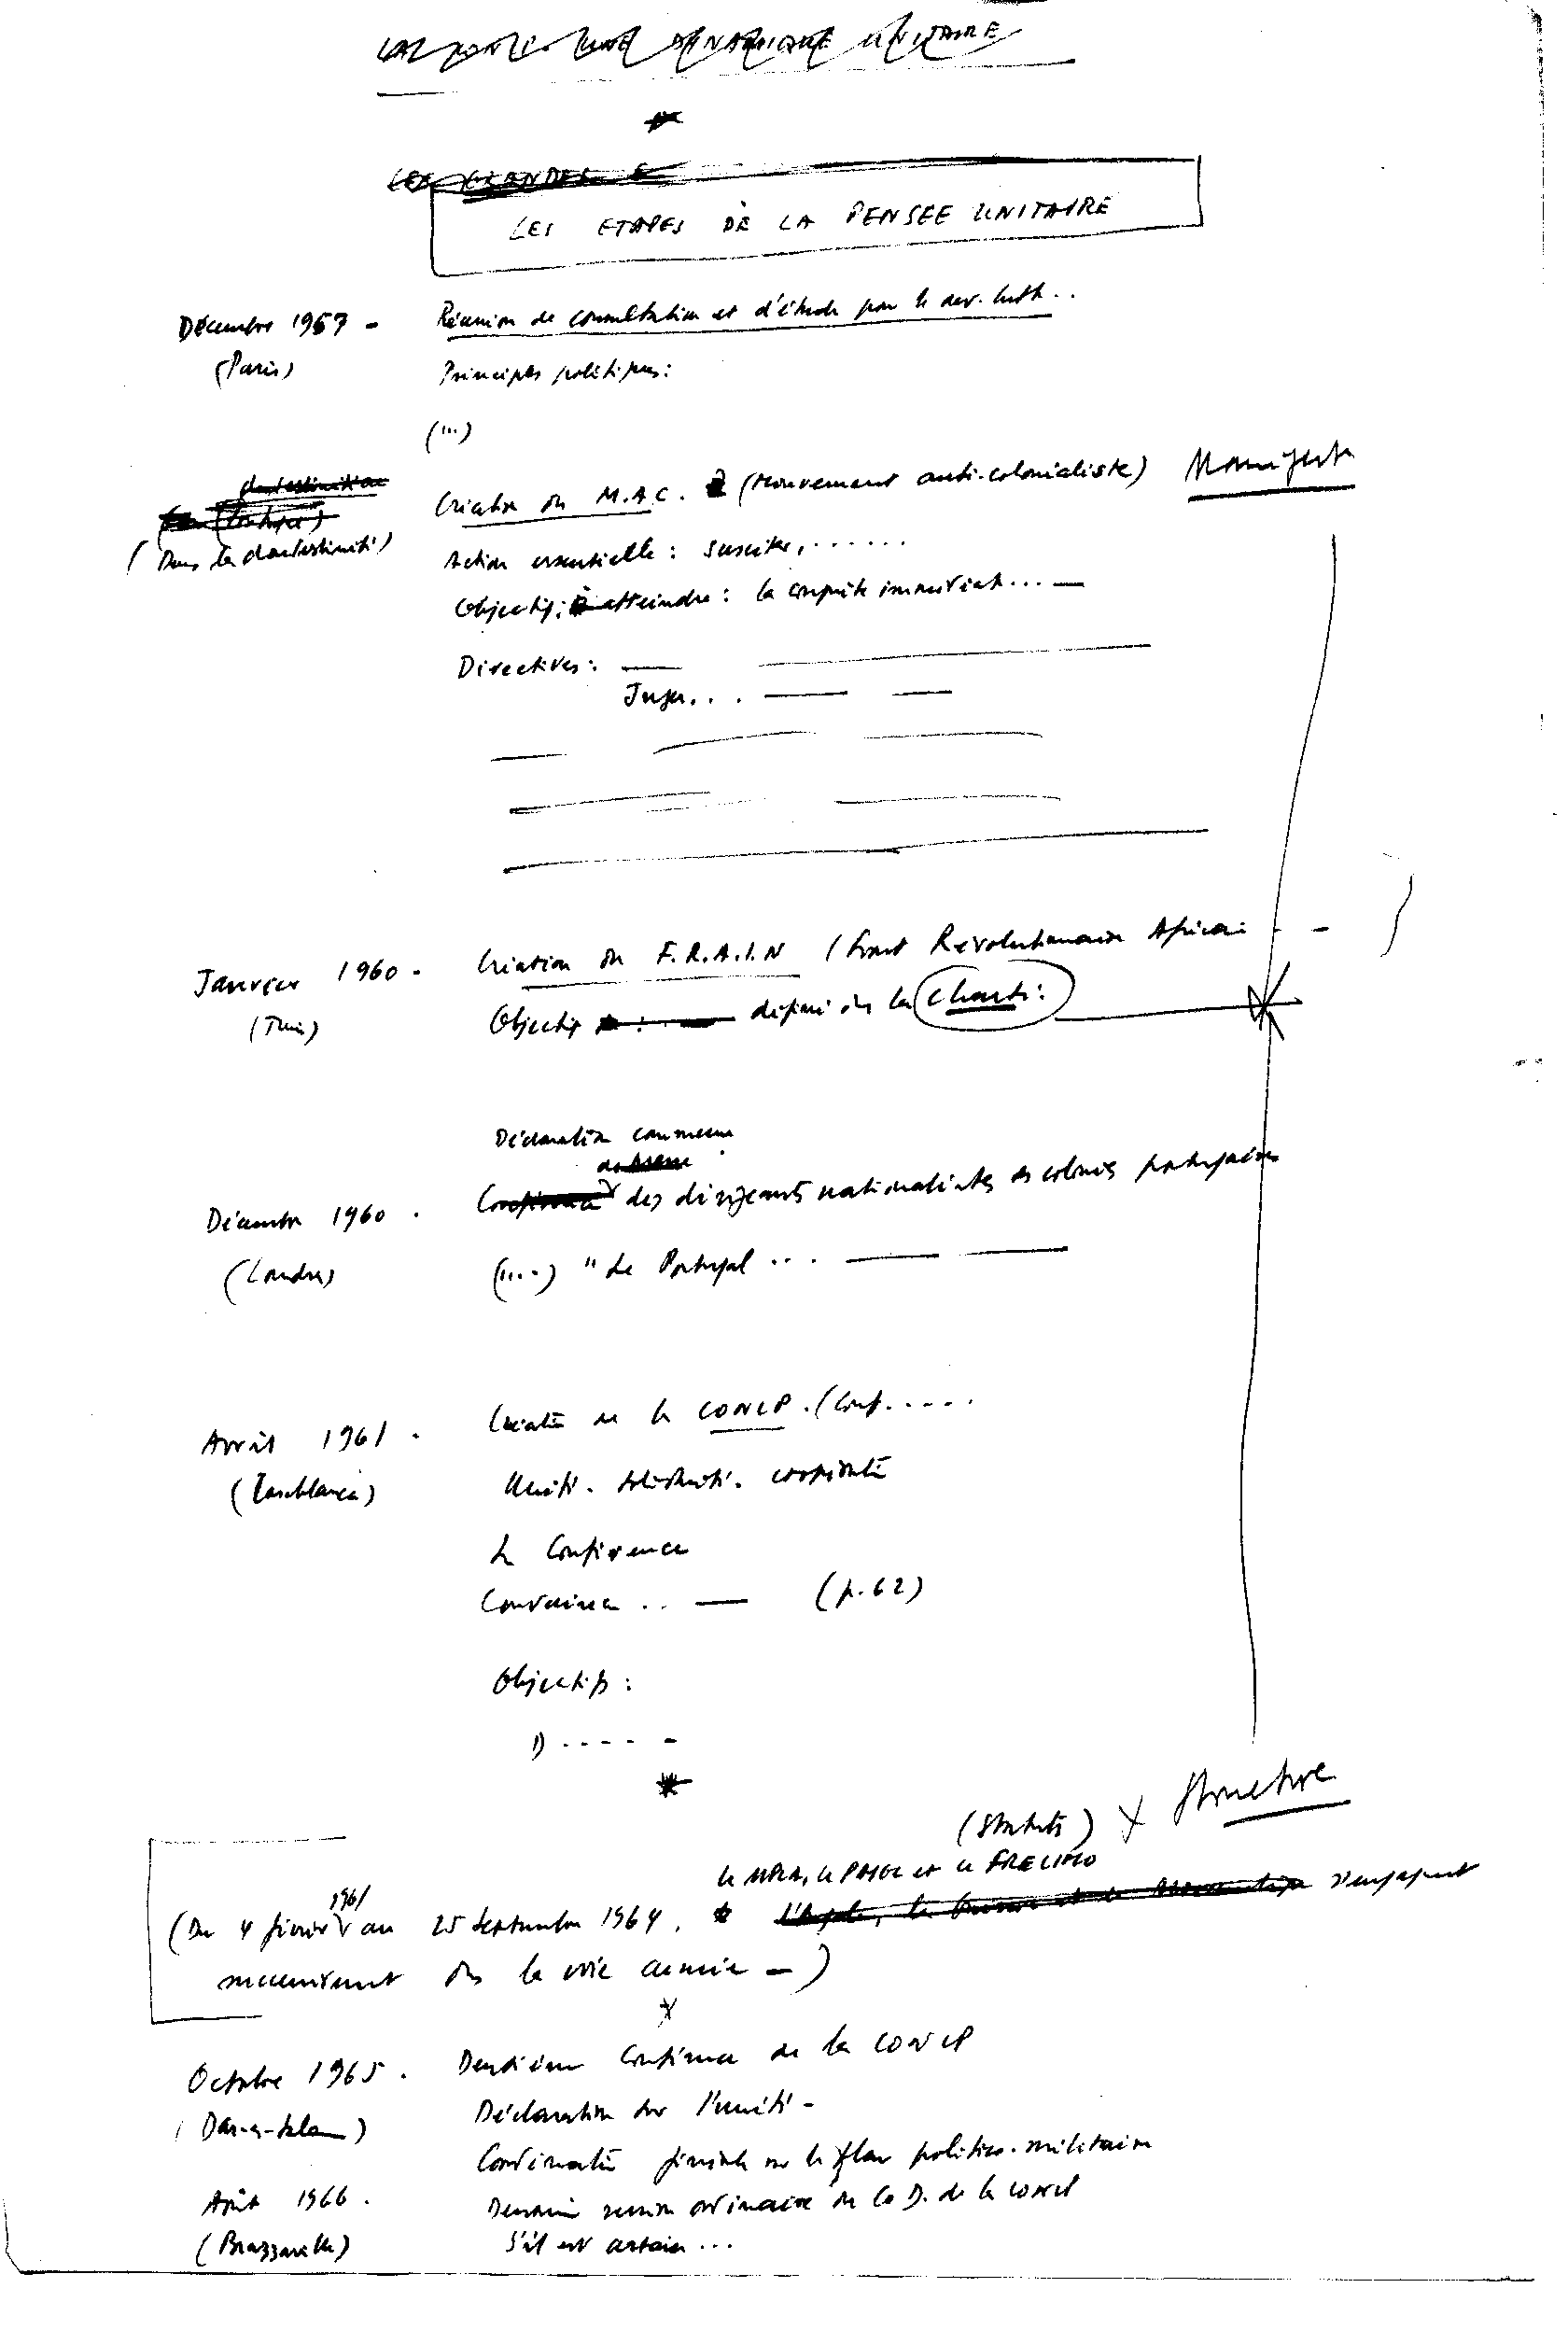 UNE DYNAMIQUE UNITAIRE
LES GRANDES E
LES ETAPES DE LA PENSEE UNITAIRE
Décembre 1957 - Réunion de consultation et d'étude pour le dev. lutte..
(Paris) Principes politiques:
(...)
clandestinité
Création du M.A.C. (Mouvement anti-colonialiste) Manifeste
(Dans la clandestinité)
Action essentielle : susciter,......
Objectifs à atteindre : la conquête immédiate... —
Directives : —
Juger... — —
Janvier 1960 - Création du F.R.A.I.N (Front Révolutionnaire Africain - -
(Tunis) Objectifs définis ds la Charte:
Déclaration commune
Conférence des dirigeants nationalistes des colonies portugaises
Décembre 1960 .
(Londres) (....) "Le Portugal ... — —
Avril 1961 . Création de la CONCP. (Conf.....
(Casablanca) Unité. Solidarité. coordination
La Conférence
Convaincue .. — (p.62)
Objectifs :
1) ---- -
(Statuts) X Structure
le MPLA, le PAIGC et le FRELIMO
(Du 4 février 1961 au 25 Septembre 1964, s'engagent
successivement ds la voie armée —)
Octobre 1965 . Deuxième Conférence de la CONCP
(Dar-es-Salam) Déclaration sur l'unité -
Coordination sur le plan politico-militaire
Août 1966 . session ordinaire du C.D. de la CONCP
(Brazzaville) S'il est certain ...